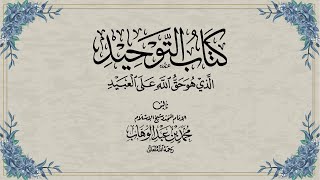 كتاب التوحيد
الذي هو حق الله على العبيد
تأليف
الإمام المجدد شيخ الإسلام
محمد بن عبد الوهاب
رحمه الله تعالى